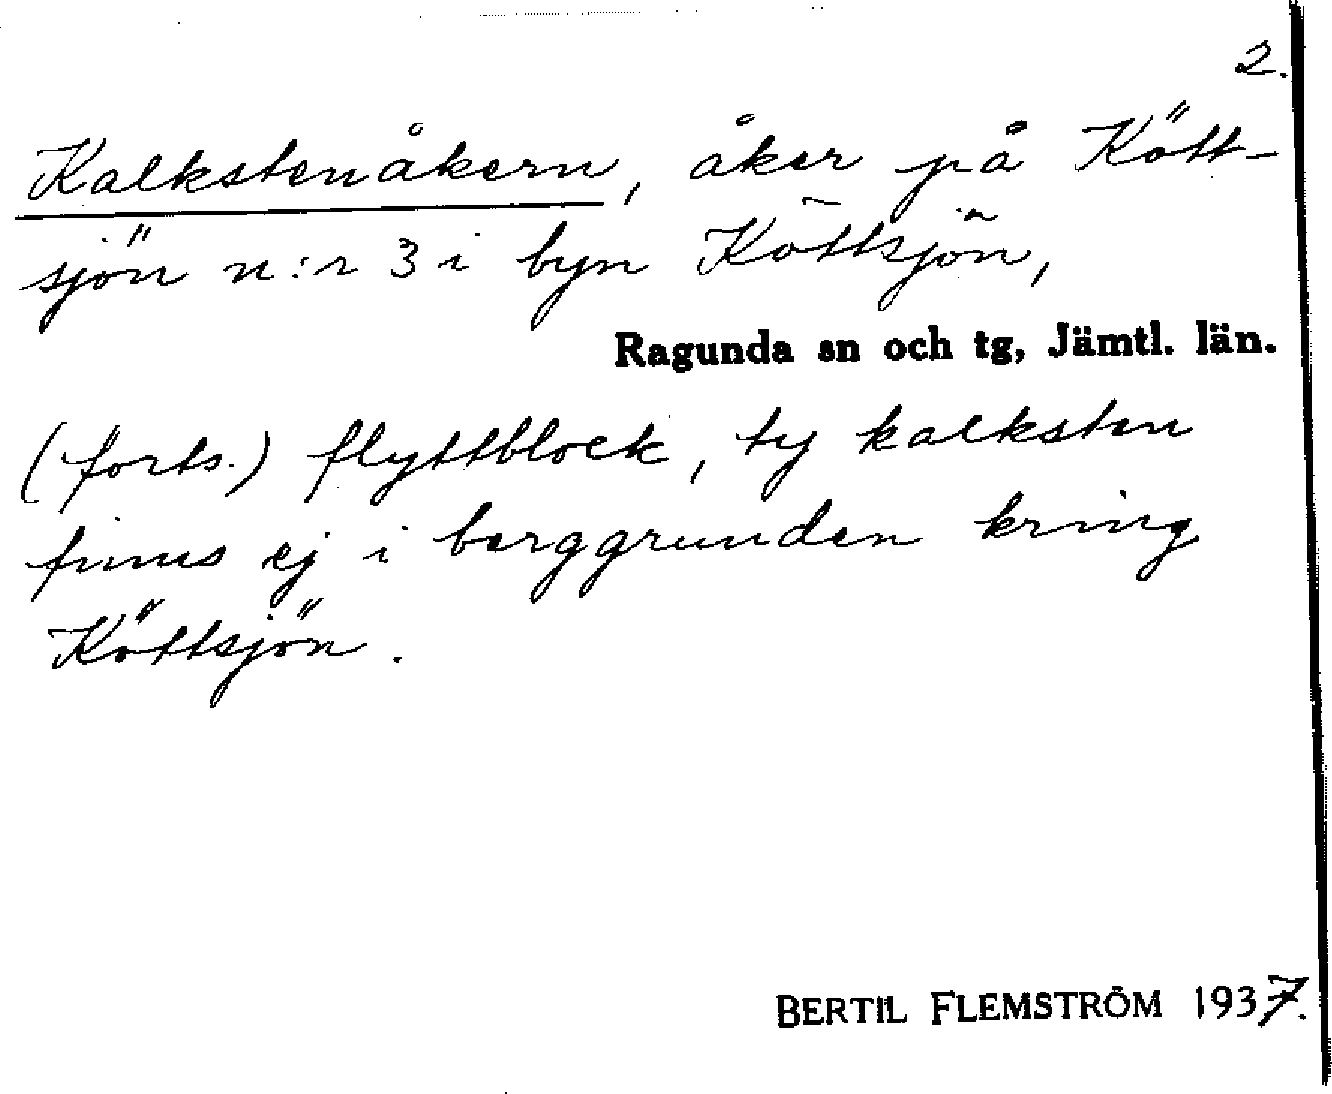 2.
Kalkstenåkern, åker på Kött-
sjön n:r 3 i byn Köttsjön,
Ragunda sn och tg, Jämtl. län.
(forts.) flyttblock, ty kalksten
finns ej i berggrunden kring
Köttsjön.
BERTIL FLEMSTRÖM 1937.